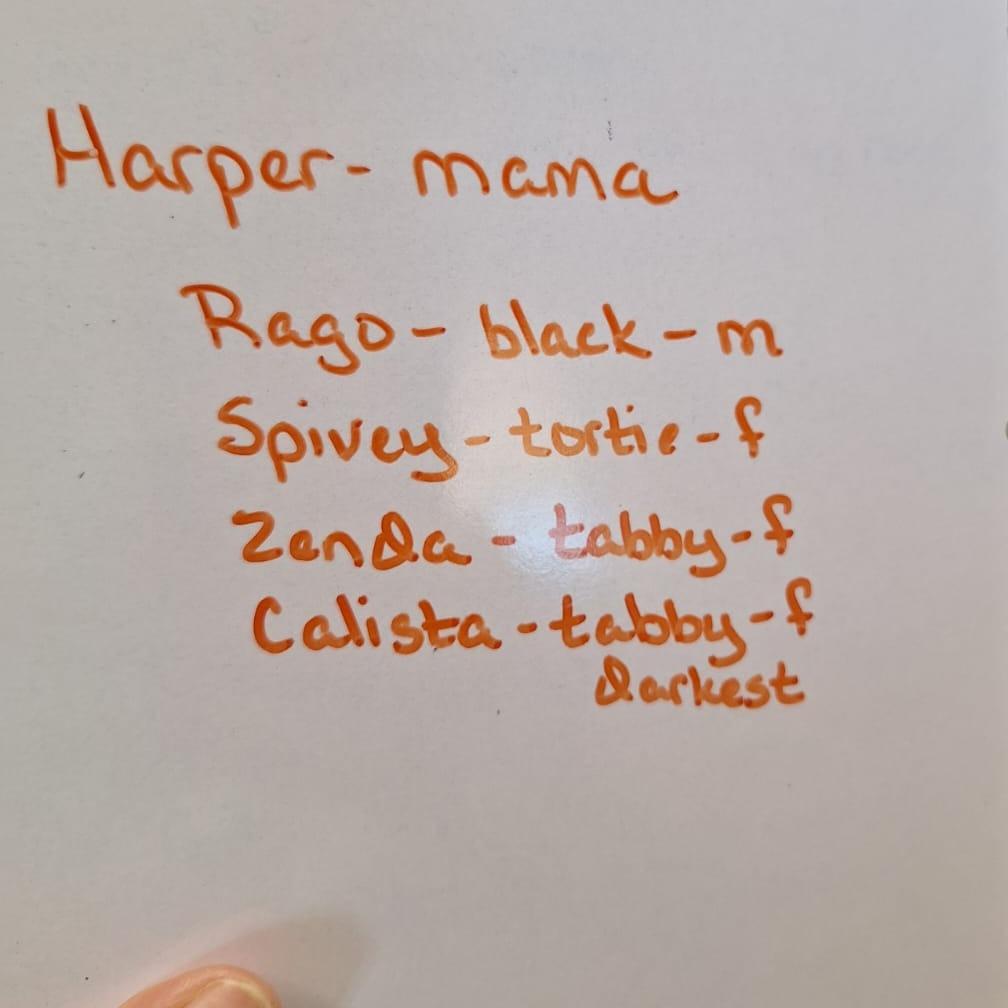 Harper - mama
Rago - black - m
Spivey - tortie - f
Zenda - tabby - f
Calista - tabby - f
darkest